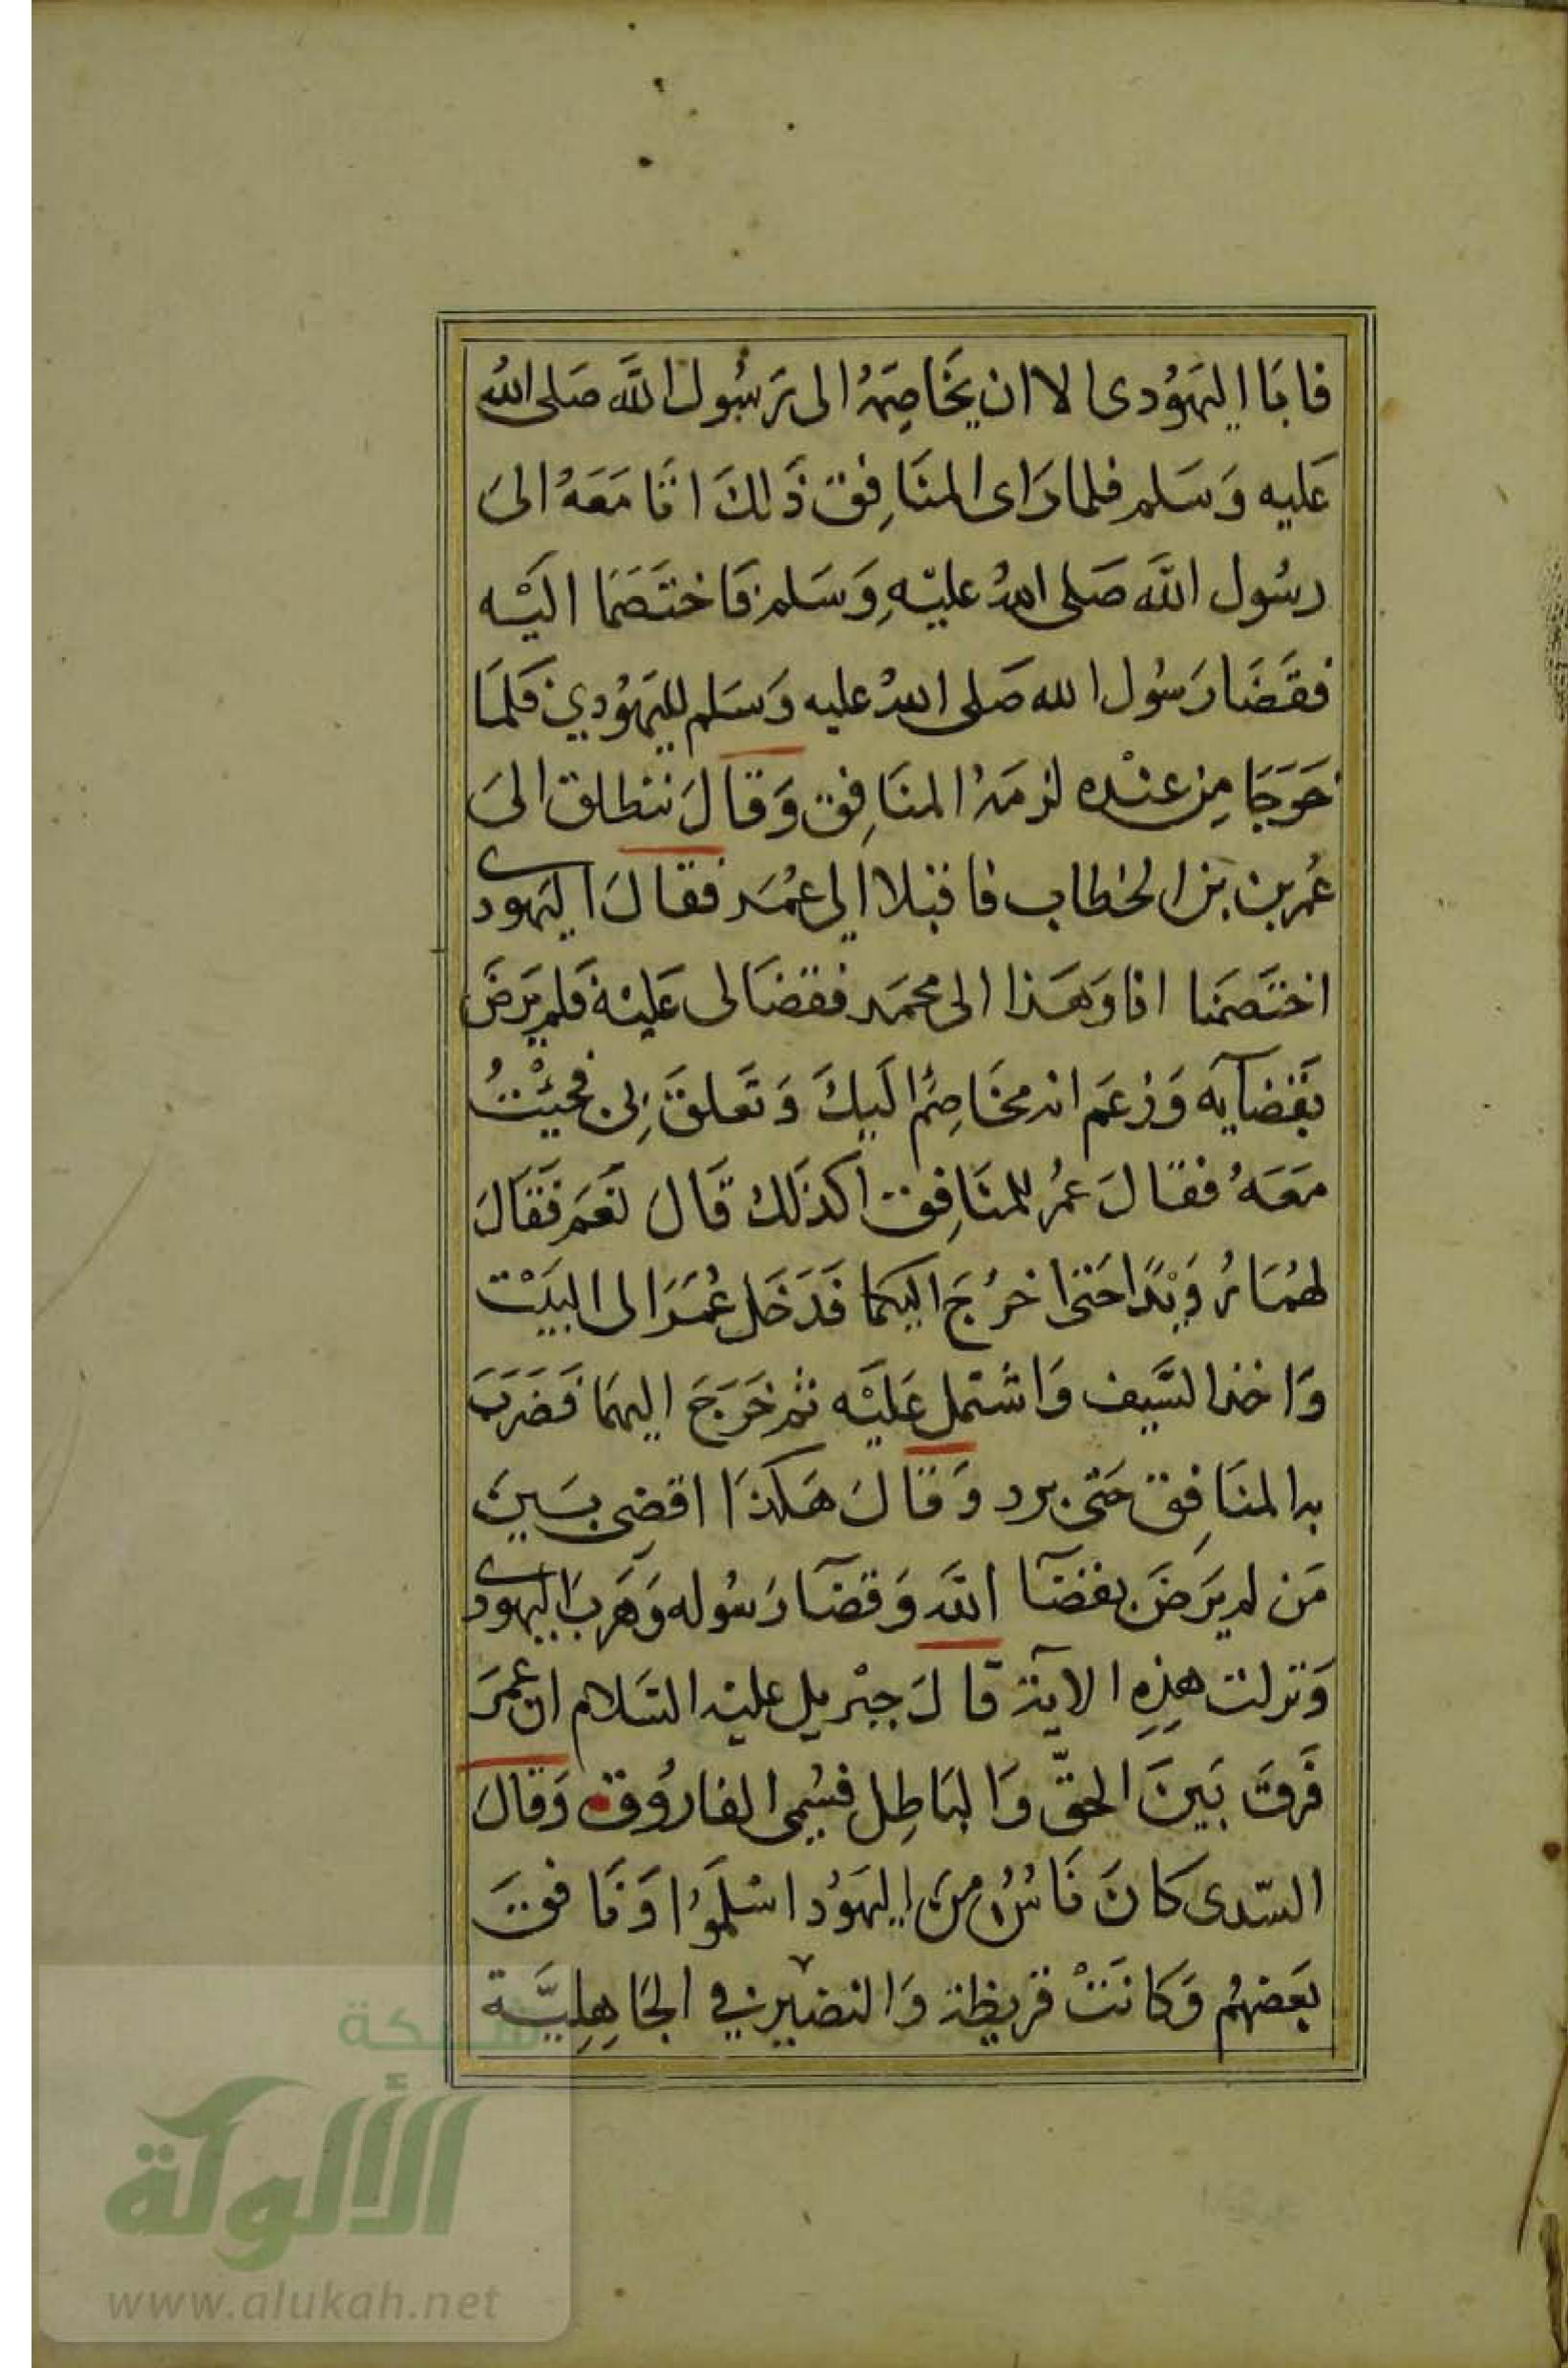 فابَا اليهَوُدى الا ان يخَاصِمَهُ الى رَسُول اللَّه صَلى الله
عَليه وَسَلم فلما رَاى المنَافِق ذَلكَ اتَا مَعَهُ الىَ
رسُول اللَّه صَلى اللهُ عليْهِ وَسَلم فَاختَصَمَا اليَْه
فقَضَا رَسُول الله صَلى اللهُ عليه وَسَلم لليَهوُدي فَلمَا
خَرَجَا مِن عنْده لزمَهُ المنَافِق وَقالَ ننطلق الىَ
عُمر بن بن الخطاب فاقبَلا الى عُمَر فقالَ اليَهودى
اختَصَمنا انا وَهَذا الى محمَد فقضَا لى عَليْه فَلم يَرضَ
بقَضآيه وَزعَم انه مخَاصِمُ اليكَ وَتعَلقَ بى فجيْتُ
معَهُ فقالَ عمُر للمنَافِق اكذَلك قَالَ نعَم فقَالَ
لهُمَا رُوَيْدًا حَتى اخرُجَ اليكما فَدَخَل عُمَرَ الى البيَْت
وَاخذ السَّيف وَاشتمل عَليْه ثم خَرَجَ اليهمَا فضَرَبَ
به المنَافِق حَتى برد وَقالَ هَكذَا اقضِى بَينَ
مَن لم يَرضَ بقضَآ اللَّه وَقضَآ رَسُوله وَهَرَب اليهودى
وَنزلت هذِهِ الآية قالَ جبْريل عليه السَلام ان عمَرَ
فَرقَ بَينَ الحقّ وَالبَاطِل فسُمى الفارُوق وَقالَ
السّدى كانَ نَاسُ منَ اليهَوُد اسْلمَوُا وَنَافقَ
بعَضهُم وَكانَتْ قريظة وَالنضير في الجَاهِليَّة
شبكة
الألوكة
www.alukah.net